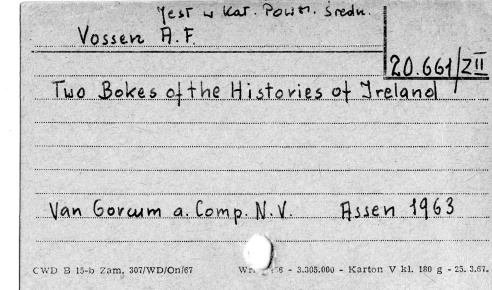 Jest w Kat. Powsz. średn.
Vossen A.F.
20.661/ZII
Two Bokes of the Histories of Ireland
Van Gorcum a. Comp. N.V. Assen 1963
CWD B 15-b Zam. 307/WD/On/67 - 3.305.000 - Karton V kl. 180 g - 25. 3.67.